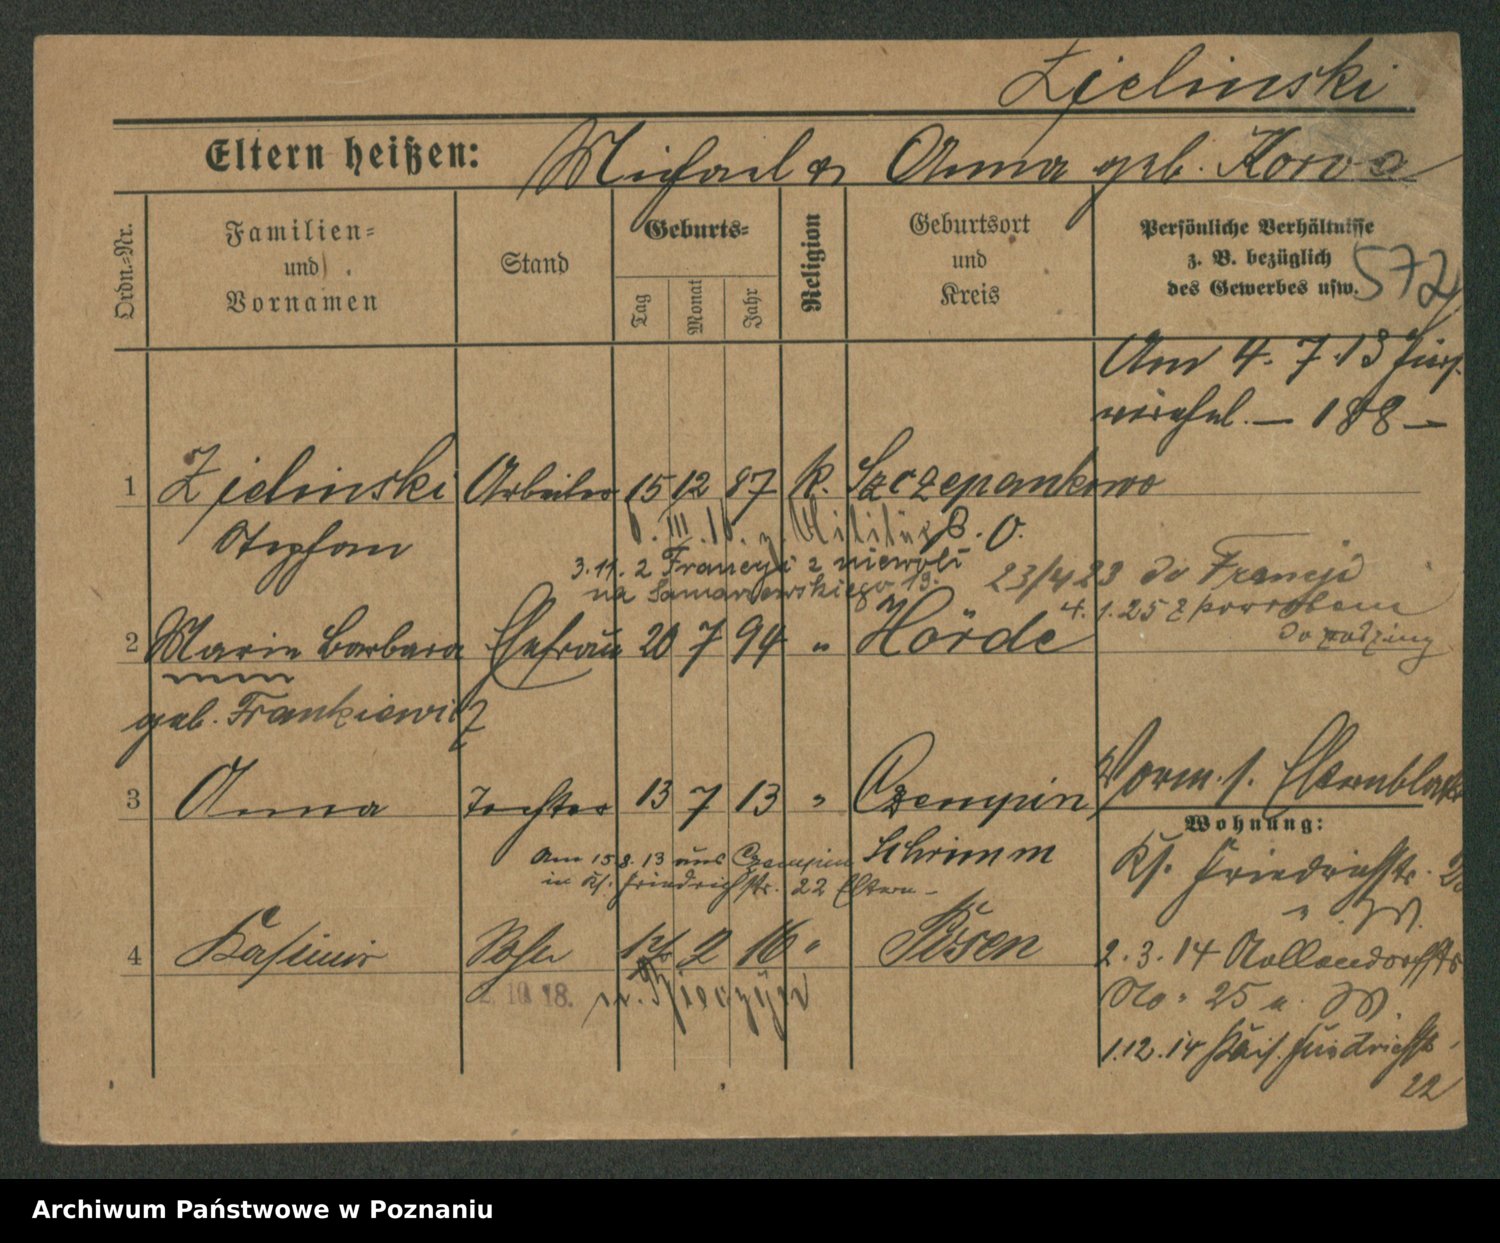 Zielinski
Eltern heißen: Michael & Anna geb.
Ordn.-Nr.
Familien-
und
Vornamen
Stand
Geburts-
Tag
Monat
Jahr
Religion
Geburtsort
und
Kreis
Persönliche Verhältnisse
z. B. bezüglich
des Gewerbes usw.
572
Am 4. 7. 13
— 188 —
1 Zielinski Arbeiter 15 12 87 k. Szczepankowo
Stephan
6. III. 16. z. Militär
3.11. z Francyi z niewoli
na Samarzewskiego 19.
23/4 23 do Francji
4.1.25 z powrotem
do rodziny
2 Maria Barbara Ehefrau 20 7 94 " Hörde
geb. Frankiewicz
3 Anna Tochter 13 7 13 " Czempin
Schrimm
Vorm. s. Elternblatt
Am 15.8.13 aus Czempin
in Ks. Friedrichstr. 22 Eltern –
Wohnung:
Ks. Friedrichstr.
" W.
4 Kasimir Sohn 2 16 " Posen
2.10.18.
2.3.14 Nollendorfstr
No. 25 a. W.
1.12.14 Kais. Friedrichstr.
22
Archiwum Państwowe w Poznaniu